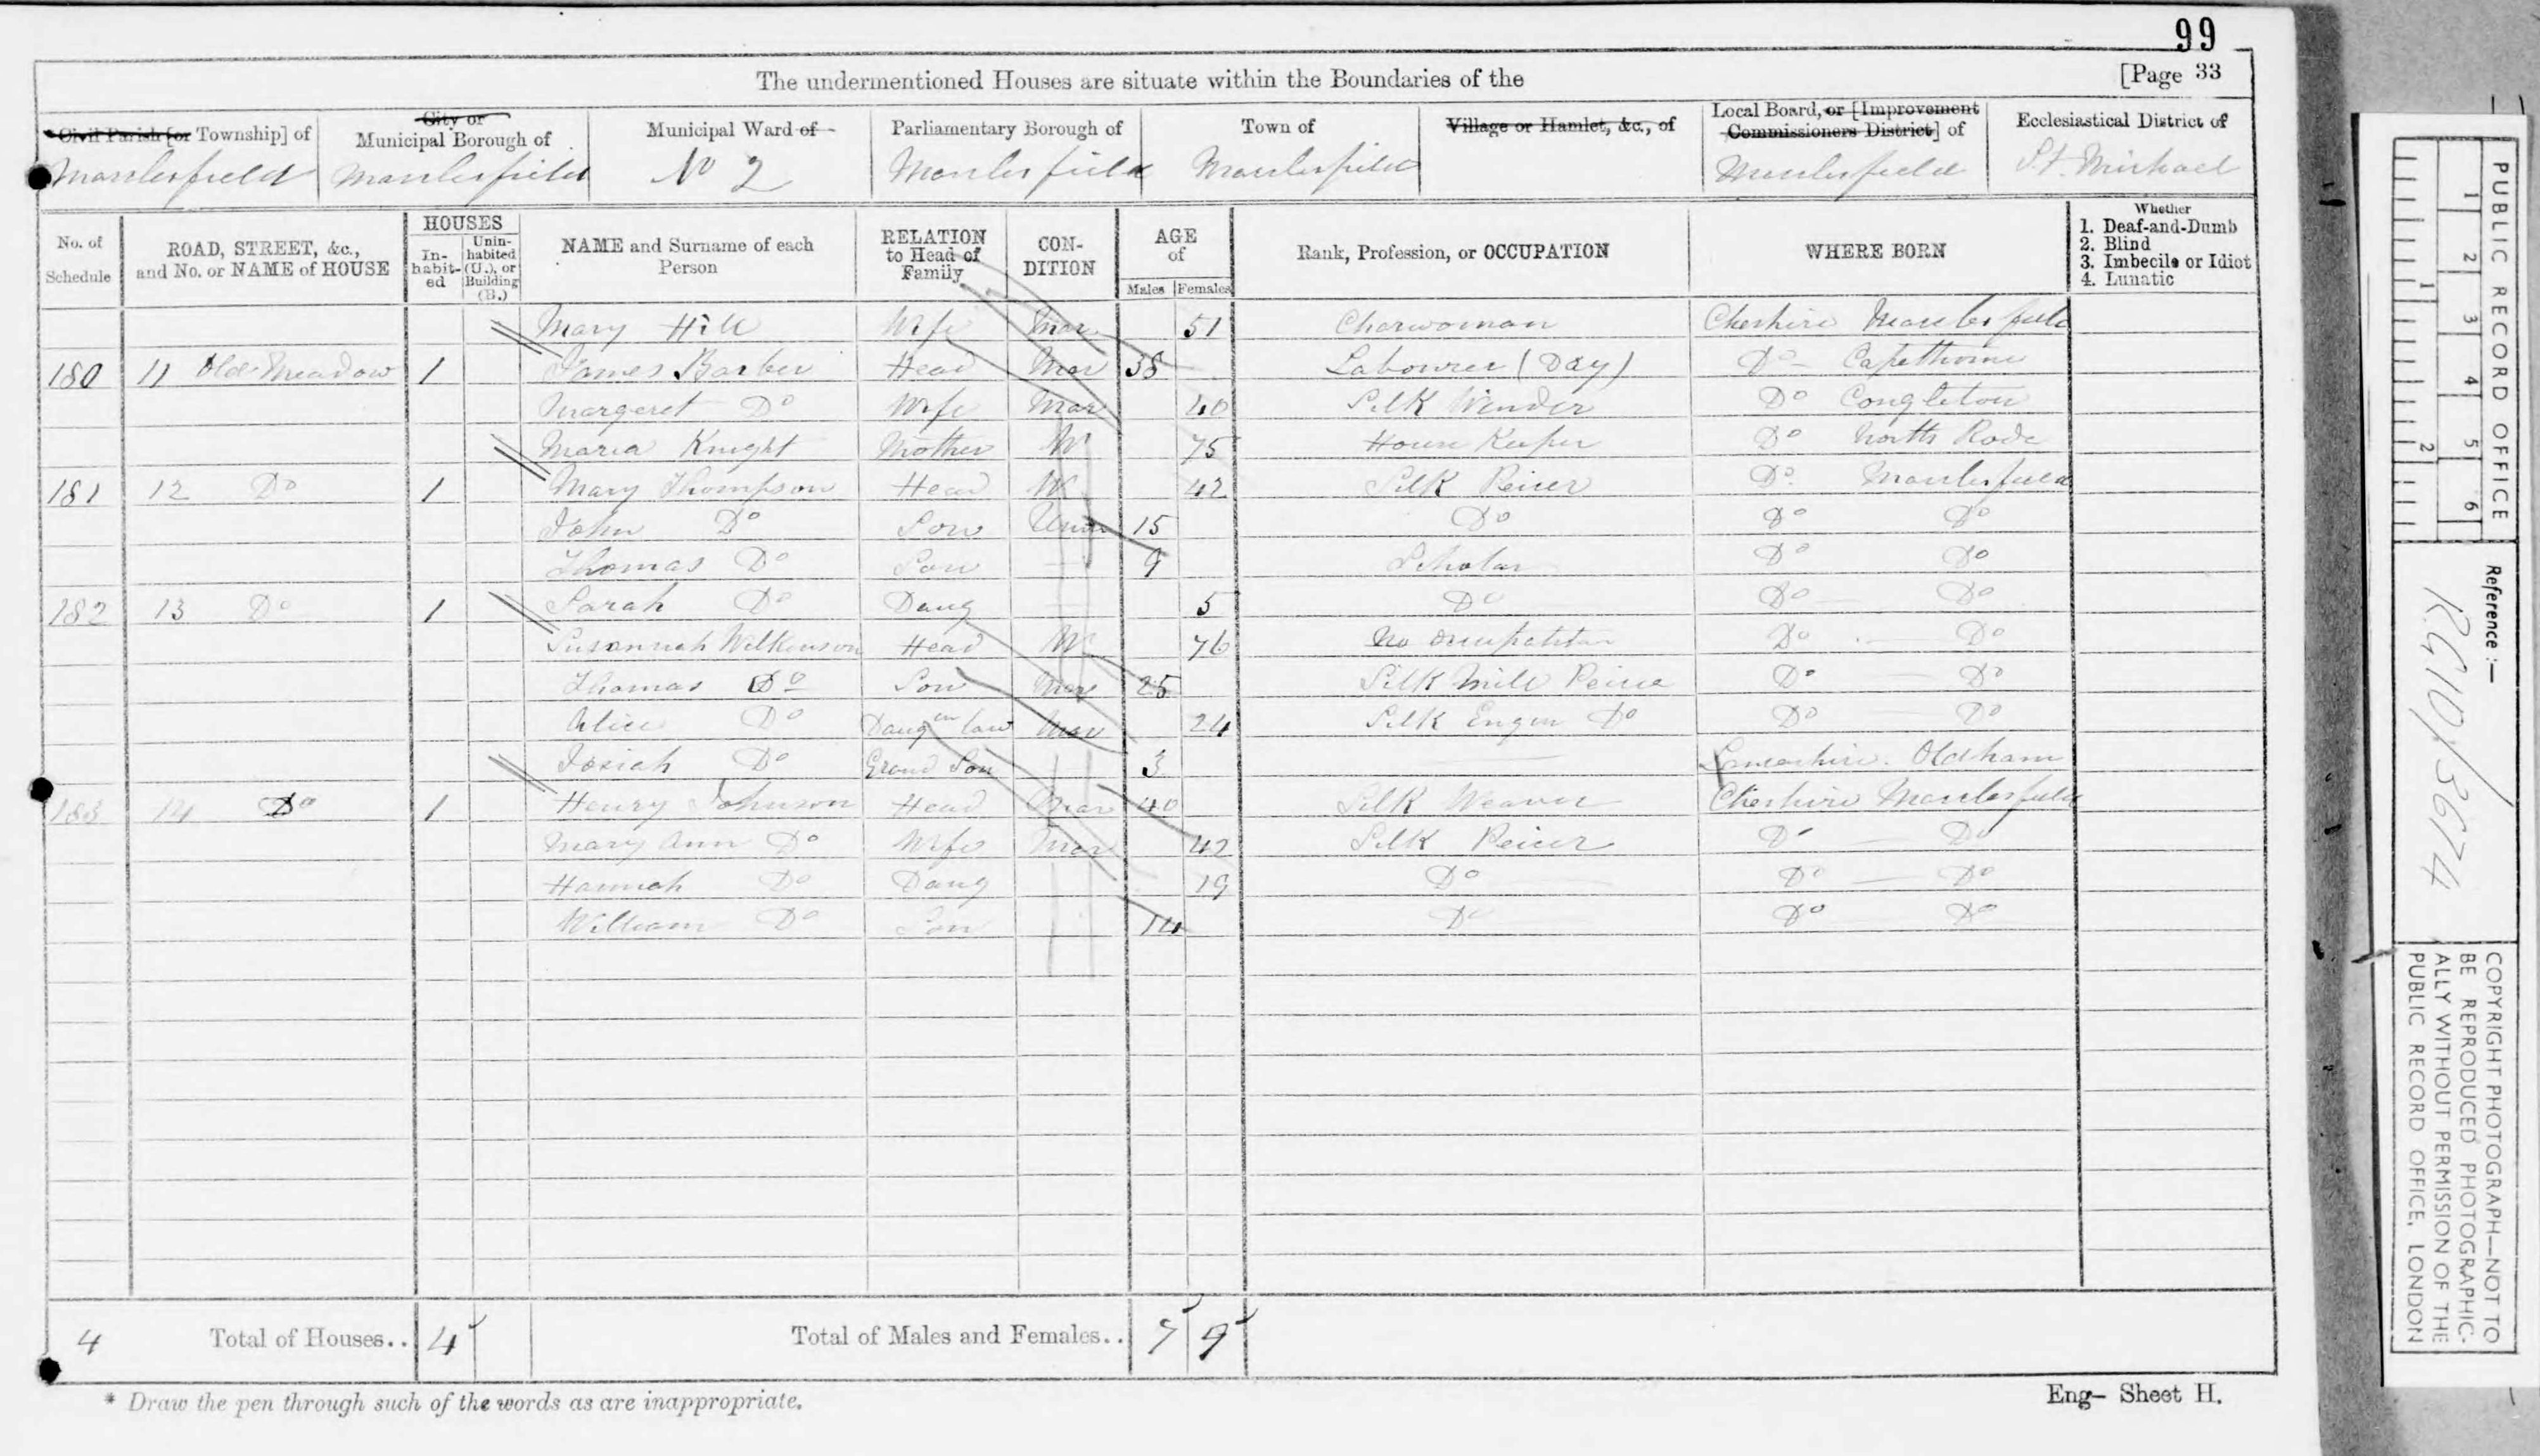 99
The undermentioned Houses are situate within the Boundaries of the
[Page 33
Civil Parish [or Township] of
City or Municipal Borough of
Municipal Ward of
Parliamentary Borough of
Town of
Village or Hamlet, &c., of
Local Board, or [Improvement Commissioners District] of
Ecclesiastical District of
Macclesfield Macclesfield No 2 Macclesfield Macclesfield Macclesfield St. Michael
No. of Schedule
ROAD, STREET, &c., and No. or NAME of HOUSE
HOUSES
In-habit-ed
Unin-habited (U.), or Building (B.)
NAME and Surname of each Person
RELATION to Head of Family
CON-DITION
AGE of
Males Females
Rank, Profession, or OCCUPATION
WHERE BORN
Whether
1. Deaf-and-Dumb
2. Blind
3. Imbecile or Idiot
4. Lunatic
Mary Hill Wife Mar 51 Charwoman Cheshire Macclesfield
180 11 Old Meadow 1 James Barber Head Mar 38 Labourer (Day) Do Capesthorne
Margaret Do Wife Mar 40 Silk Winder Do Congleton
Maria Knight Mother W 75 House Keeper Do North Rode
181 12 Do 1 Mary Thompson Head W 42 Silk Peicer Do Macclesfield
John Do Son Unm 15 Do Do Do
Thomas Do Son 9 Scholar Do Do
182 13 Do 1 Sarah Do Daug 5 Do Do Do
Susannah Wilkinson Head W 76 No occupation Do Do
Thomas Do Son Mar 25 Silk Mill Do Do
Alice Do Daug in law Mar 24 Silk Engin Do Do Do
Josiah Do Grand Son 3 Lancashire. Oldham
183 14 Do 1 Henry Johnson Head Mar 40 Silk Weaver Cheshire Macclesfield
Mary Ann Do Wife Mar 42 Silk Peicer Do Do
Hannah Do Daug 19 Do Do Do
William Do Son 14 Do Do Do
4 Total of Houses.. 4 Total of Males and Females.. 7 9
* Draw the pen through such of the words as are inappropriate.
Eng- Sheet H.
PUBLIC RECORD OFFICE
1 2 3 4 5 6
1 2
Reference :—
R.G.10/3674
COPYRIGHT PHOTOGRAPH—NOT TO
BE REPRODUCED PHOTOGRAPHIC-
ALLY WITHOUT PERMISSION OF THE
PUBLIC RECORD OFFICE, LONDON